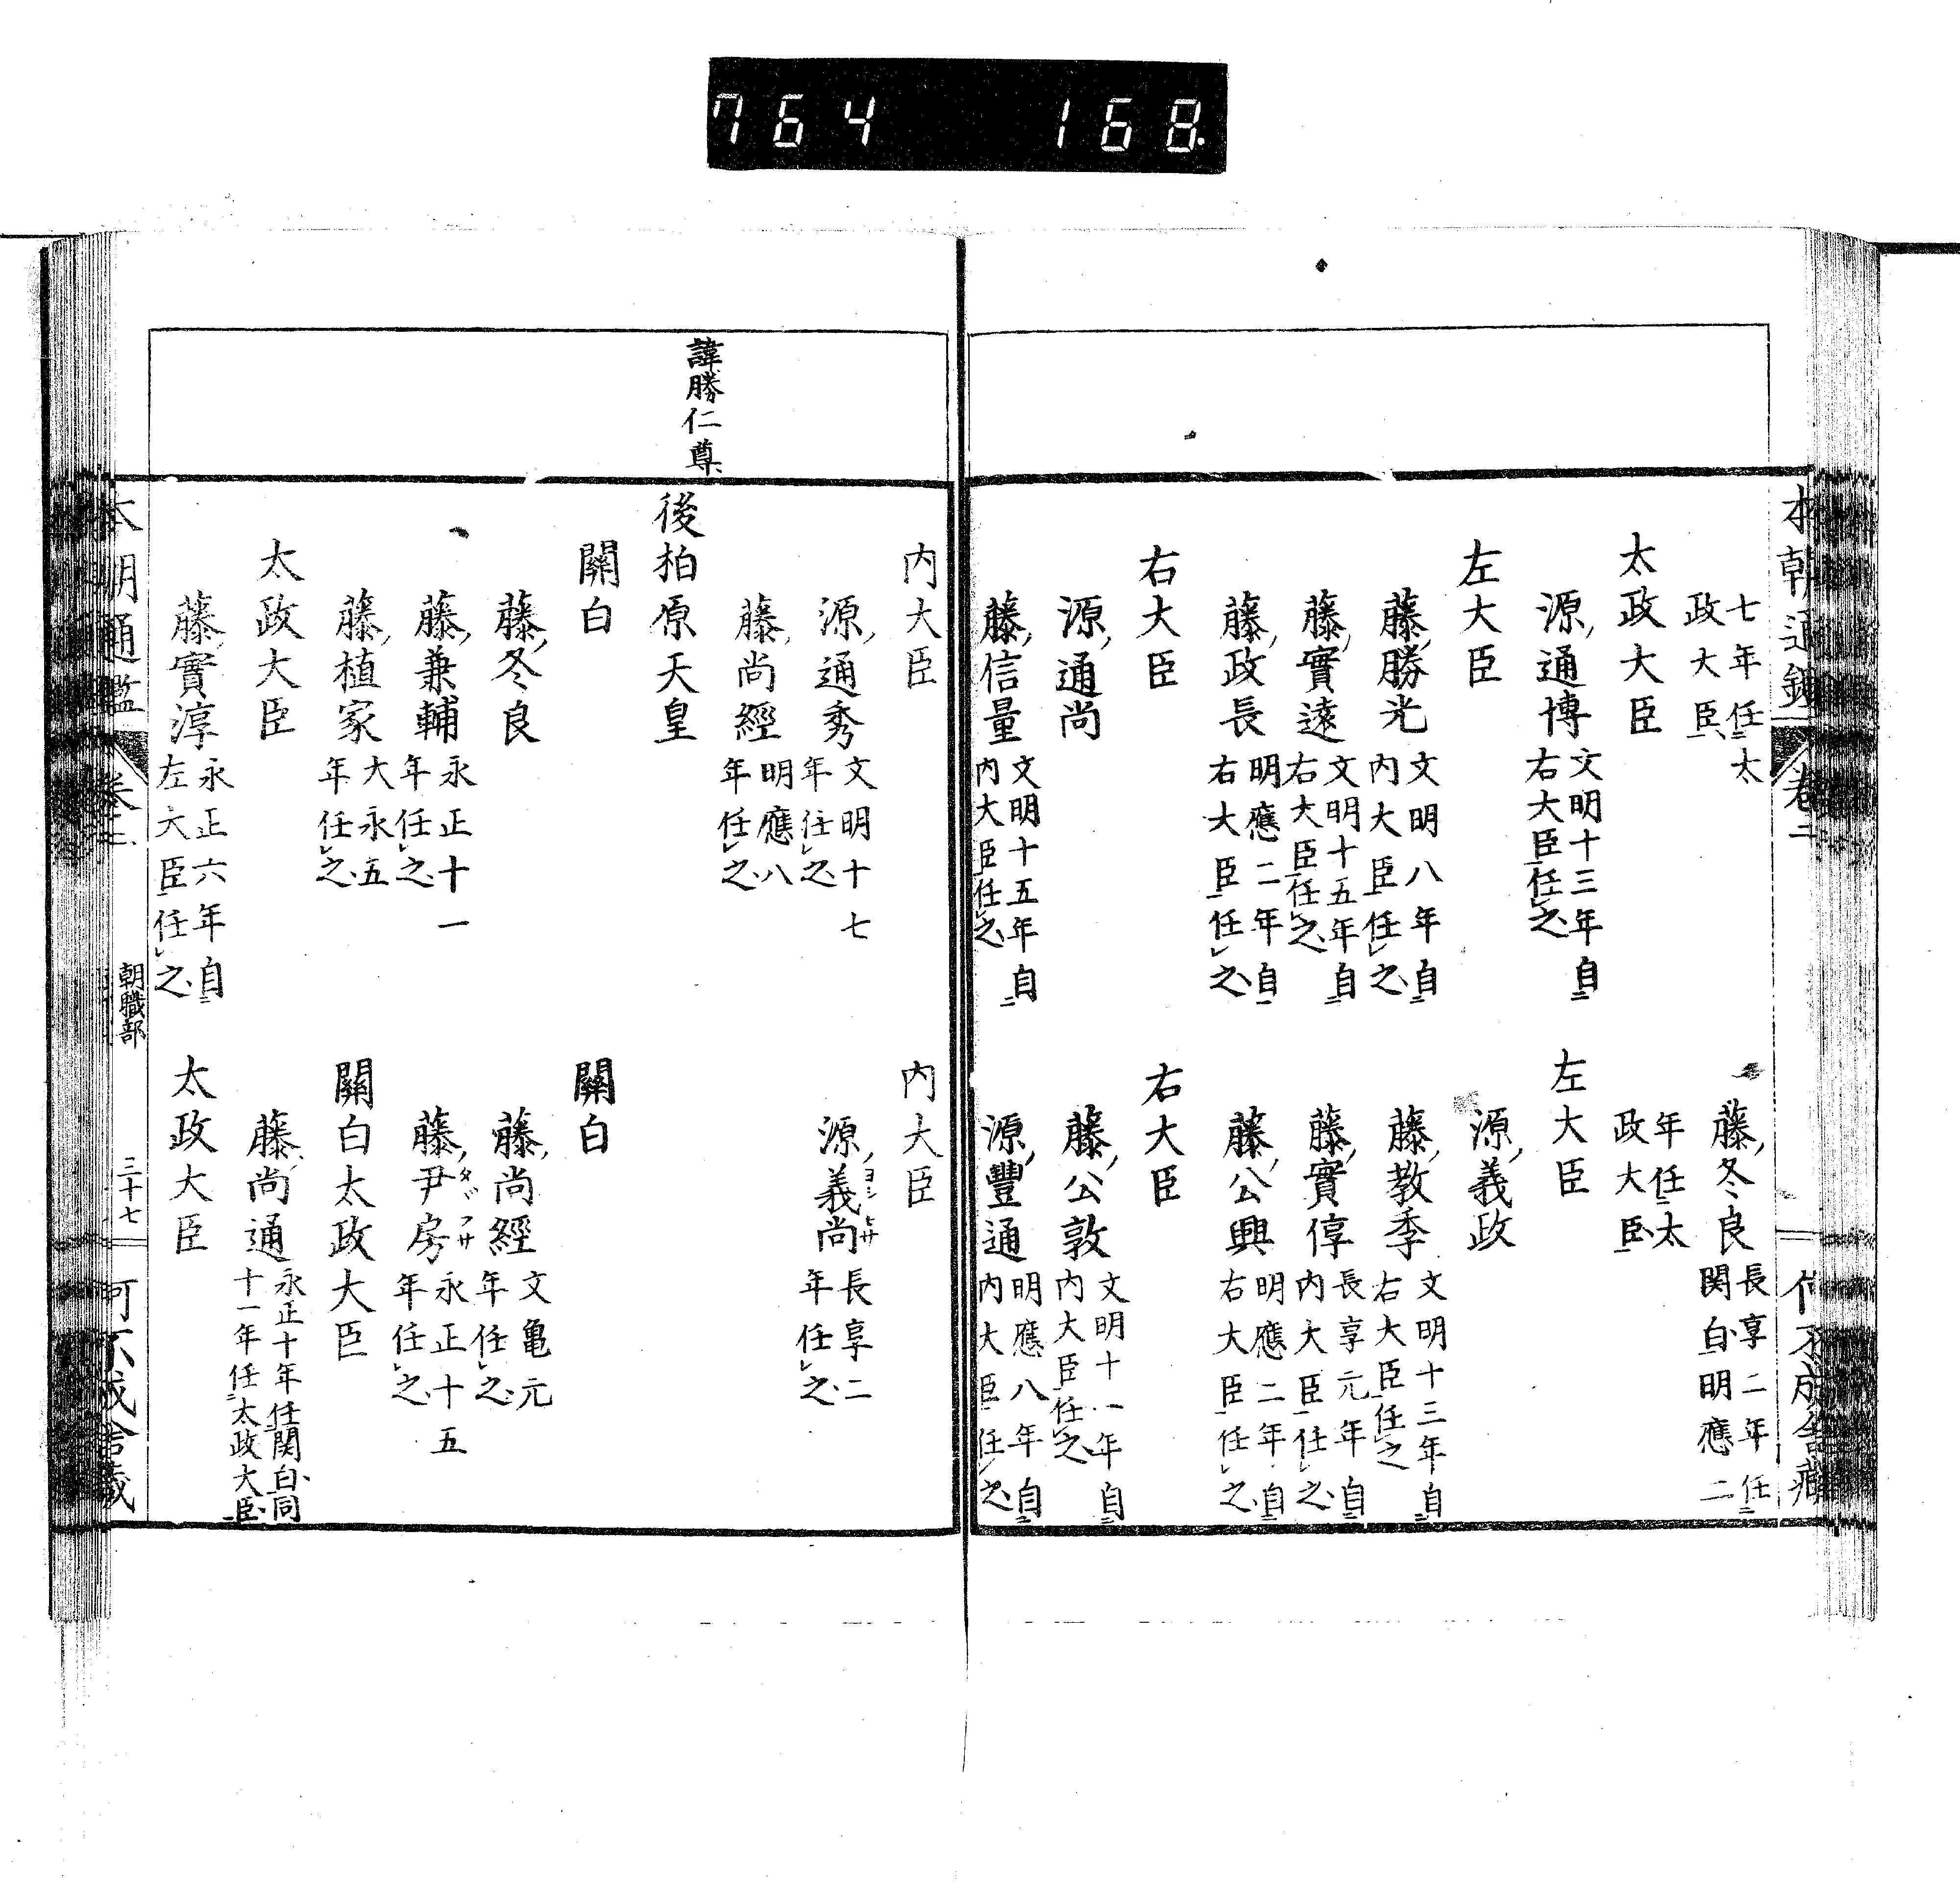 764 168
本朝通鑑 卷二
七年任太
政大臣
藤冬良 長享二年任
関白明應二
年任太
政大臣
太政大臣
源通博 文明十三年自
右大臣任之
左大臣
左大臣
源義政
藤勝光 文明八年自
内大臣任之
藤教季 文明十三年自
右大臣任之
藤實遠 文明十五年自
右大臣任之
藤實淳 長享元年自
内大臣任之
藤政長 明應二年自
右大臣任之
藤公興 明應二年自
右大臣任之
右大臣
右大臣
源通尚
藤公敦 文明十一年自
内大臣任之
藤信量 文明十五年自
内大臣任之
源豐通 明應八年自
内大臣任之
内大臣
内大臣
源通秀 文明十七
年任之
源義尚 長享二
年任之
ヨシヒサ
藤尚經 明應八
年任之
諱勝仁尊
後柏原天皇
關白
關白
藤冬良
藤尚經 文亀元
年任之
藤兼輔 永正十一
年任之
藤尹房 永正十五
年任之
タヾフサ
藤植家 大永五
年任之
關白太政大臣
太政大臣
藤尚通 永正十年任関白同
十一年任太政大臣
藤實淳 永正六年自
左大臣任之
太政大臣
本朝通鑑 卷二
朝職部
三十七